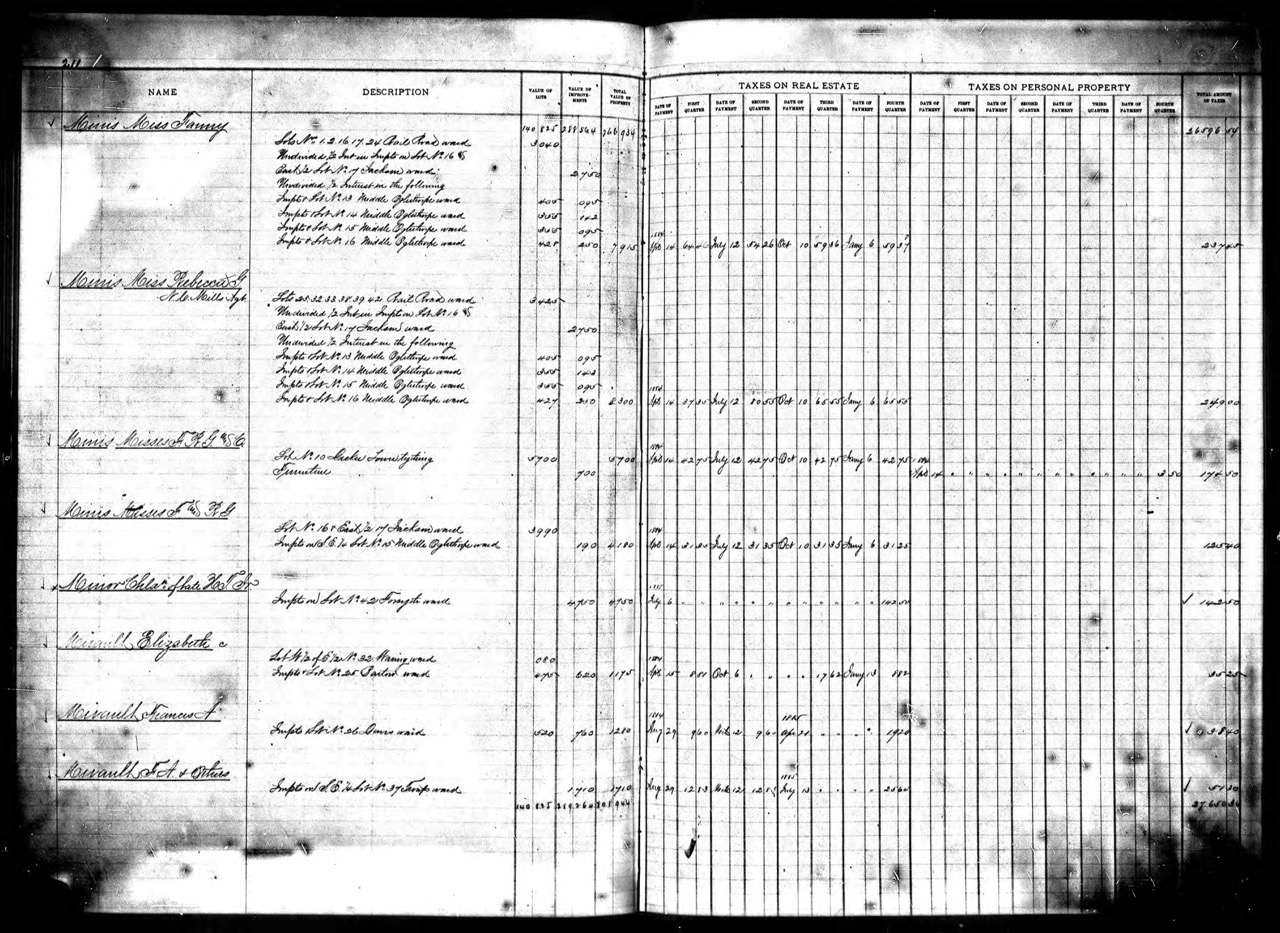 211
NAME DESCRIPTION VALUE OF LOTS VALUE OF IMPROVEMENTS TOTAL VALUE OF PROPERTY TAXES ON REAL ESTATE TAXES ON PERSONAL PROPERTY TOTAL AMOUNT OF TAXES
DATE OF PAYMENT FIRST QUARTER DATE OF PAYMENT SECOND QUARTER DATE OF PAYMENT THIRD QUARTER DATE OF PAYMENT FOURTH QUARTER DATE OF PAYMENT FIRST QUARTER DATE OF PAYMENT SECOND QUARTER DATE OF PAYMENT THIRD QUARTER DATE OF PAYMENT FOURTH QUARTER
Minis Miss Fanny 140 825 26596 54
Lots Nos 1. 2. 16. 17. 24 Rail Road ward 3040
Undivided 1/2 Int in Impts on Lot No 16 &
East 1/2 Lot No 17 Jackson ward 2750
Undivided 1/2 Interest in the following
Impts & Lot No 13 Middle Oglethorpe ward 405 095
Impts & Lot No 14 Middle Oglethorpe ward 355 142
Impts & Lot No 15 Middle Oglethorpe ward 355 095
1884
Impts & Lot No 16 Middle Oglethorpe ward 428 250 7915 Apl 14 64 46 July 12 54 26 Oct 10 59 36 Jany 6 59 37 237 45
Minis Miss Rebecca G
Lots 25. 32. 33. 38. 39. 42 Rail Road ward 3425
Undivided 1/2 Int in Impts on Lot No 16 &
East 1/2 Lot No 17 Jackson ward 2750
Undivided 1/2 Interest in the following
Impts & Lot No 13 Middle Oglethorpe ward 405 095
Impts & Lot No 14 Middle Oglethorpe ward 355 143
Impts & Lot No 15 Middle Oglethorpe ward 355 095
1884
Impts & Lot No 16 Middle Oglethorpe ward 427 250 8300 Apl 14 37 35 July 12 80 55 Oct 10 65 55 Jany 6 65 55 249 00
Minis Misses F. R. G &
1884
Lot No 10 Tything 5700 5700 Apl 14 42 75 July 12 42 75 Oct 10 42 75 Jany 6 42 75 1884
Furniture 700 Apl 14 " " " " " " " " " " " " 3 50 174 50
Minis Misses F and R G
Lot No 16 & East 1/2 17 Jackson ward 3990 1884
Impts on S. E. 1/4 Lot No 15 Middle Oglethorpe ward 190 4180 Apl 14 31 35 July 12 31 35 Oct 10 31 35 Jany 6 31 35 125 40
Minor of late H. T. Jr
Impts on Lot No 42 Forsyth ward 4750 4750 July 6 " " " " " " " " " " 142 50 142 50
Mirault, Elizabeth
Lot W 1/2 of E 1/2 No 22 Waring ward 080 1884
Impts & Lot No 25 ward 475 620 1175 Apl 15 8 81 Oct 6 " " " 17 62 Jany 13 8 82 35 25
Mirault, Francis A.
1884 1885
Impts & Lot No 26 Davis ward 520 760 1280 Aug 29 9 60 12 9 60 " " " " 19 20 38 40
Mirault, F. A. & Others
1885
Impts on S. E. 1/4 Lot No 37 Troup ward 1710 1710 Aug 29 12 83 12 July 13 " " " " 25 64 51 30
140 825 27650 34